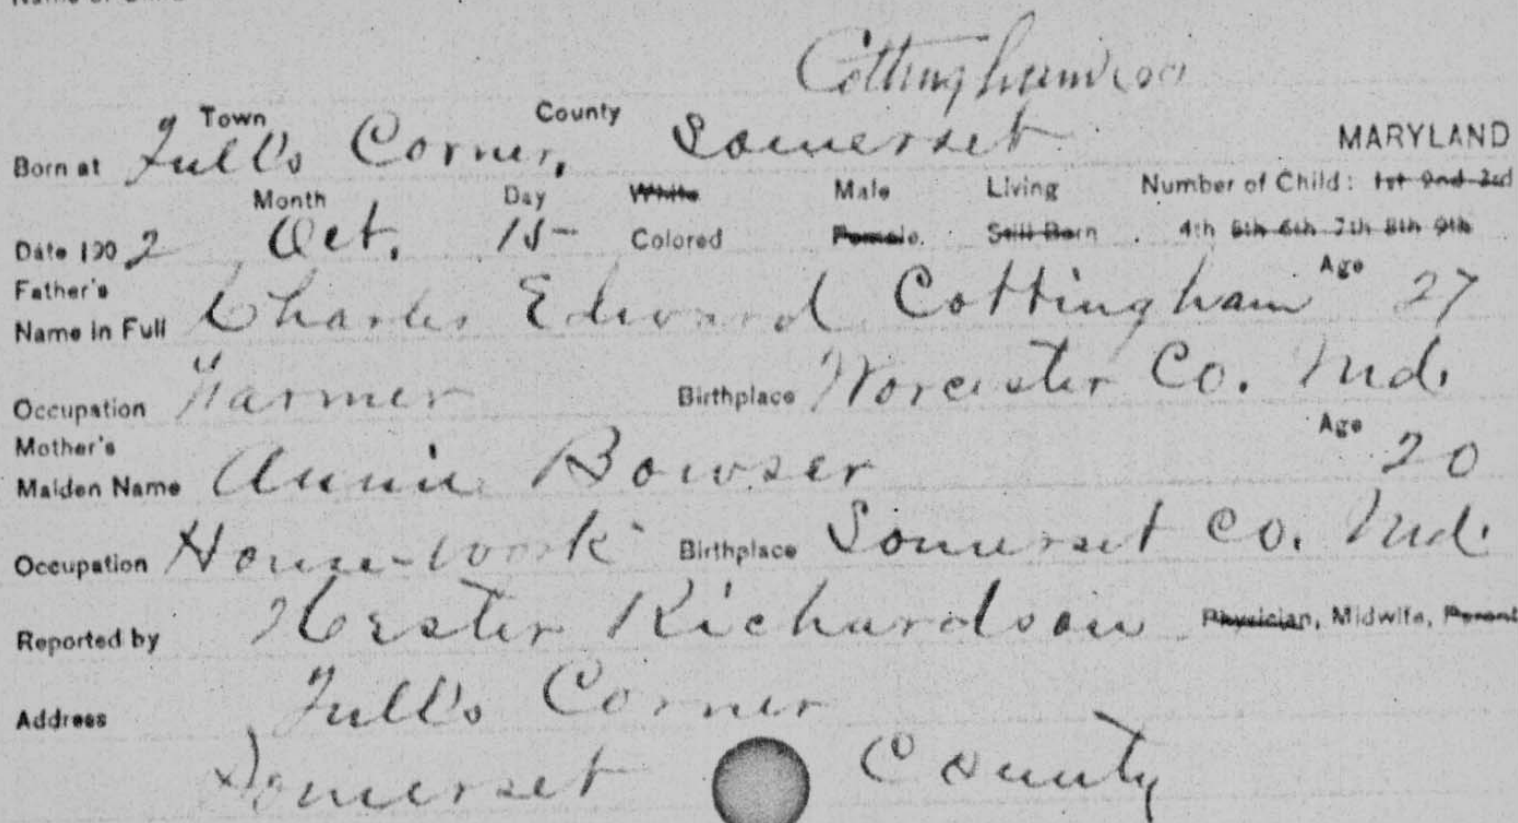 Cottingham
Town County
Born at Tull's Corner, Somerset MARYLAND
Month Day White Male Living Number of Child: 1st 2nd 3rd
Date 190 2 Oct. 15 Colored Female. Still Born . 4th 5th 6th 7th 8th 9th
Father's Age
Name in Full Charles Edward Cottingham 27
Occupation Farmer Birthplace Worcester Co. Md.
Mother's Age
Maiden Name Annie Bowser 20
Occupation House-work Birthplace Somerset Co. Md.
Reported by Hester Richardson Physician, Midwife, Parent
Address Tull's Corner
Somerset County